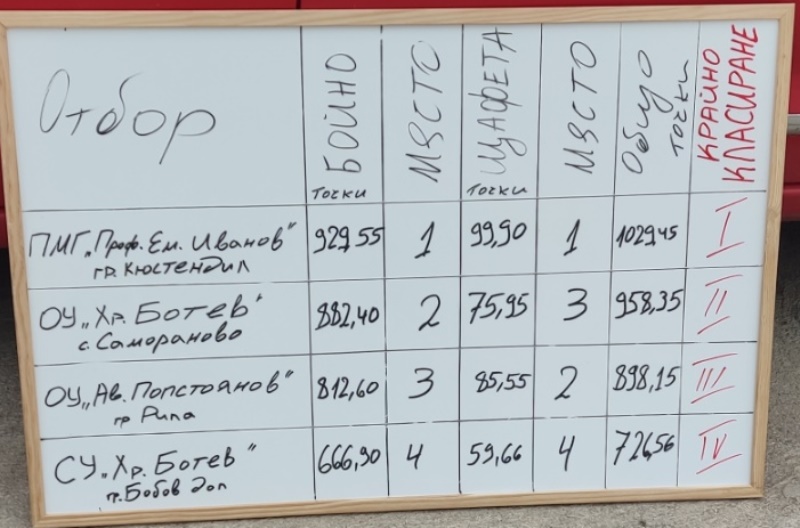 Отбор
БОЙНО
точки
МЯСТО
ЩАФЕТА
точки
МЯСТО
Общо
точки
КРАЙНО
КЛАСИРАНЕ
ПМГ „Проф. Ем. Иванов" 929,55 1 99,90 1 1029,45 I
гр. Кюстендил
ОУ „Хр. Ботев" 882,40 2 75,95 3 958,35 II
с. Самораново
ОУ „Ав. Попстоянов" 812,60 3 85,55 2 898,15 III
гр Рила
СУ „Хр. Ботев" 666,90 4 59,66 4 726,56 IV
гр. Бобов дол